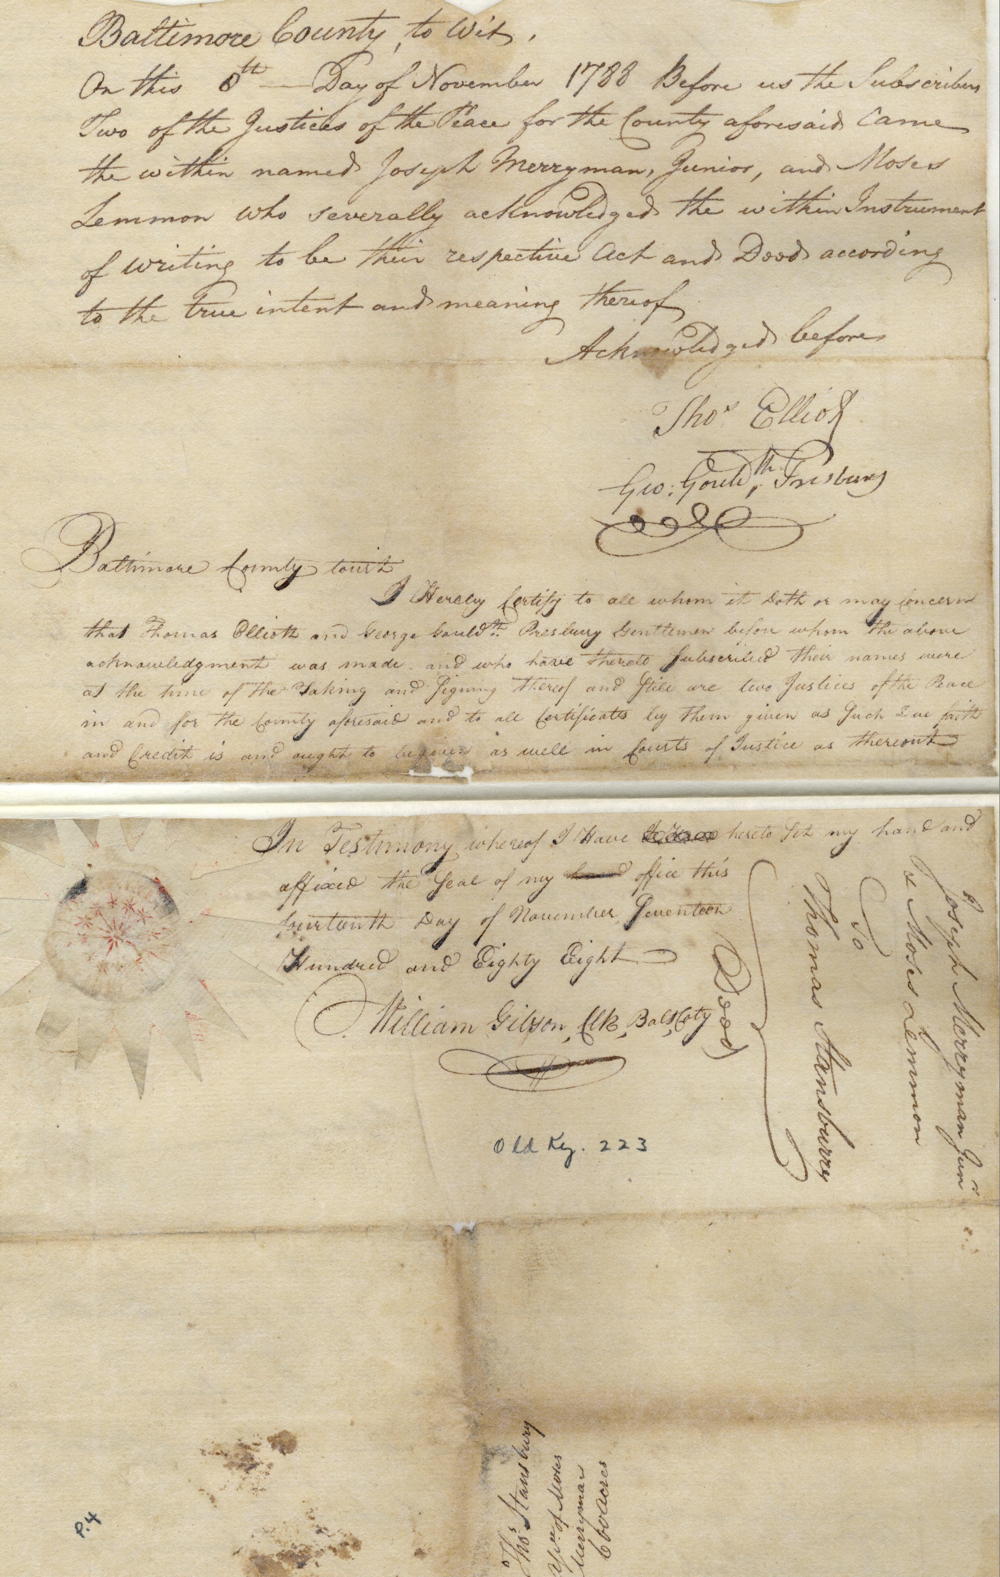 Baltimore County, to Wit,
On this 8th Day of November 1788 Before us the Subscribers
Two of the Justices of the Peace for the County aforesaid Came
the within named Joseph Merryman, Junior, and Moses
Lemmon who severally acknowledged the within Instrument
of writing to be their respective Act and Deed according
to the true intent and meaning thereof
Acknowledged before
Thos Elliot
Geo: Gouldth Presbury
Baltimore County towit
I Hereby Certify to all whom it doth or may Concern
that Thomas Elliott and George Gouldth Presbury Gentlemen before whom the above
acknowledgment was made and who have thereto Subscribed their names were
at the time of the Taking and Signing thereof and Still are two Justices of the Peace
in and for the County aforesaid and to all Certificates by them given as Such Due faith
and Credit is and ought to be given as well in Courts of Justice as thereout
In Testimony whereof I Have hereto Set my hand and
affixed the Seal of my office this
fourteenth Day of November Seventeen
Hundred and Eighty Eight
William Gibson, Clk, Balt Coty
Joseph Merryman Junr
& Moses Lemmon
To
Thomas Stansbury
Deed
Old Ky. 223
Thos Stansbury
of Moses
Merryman
acres
P.4